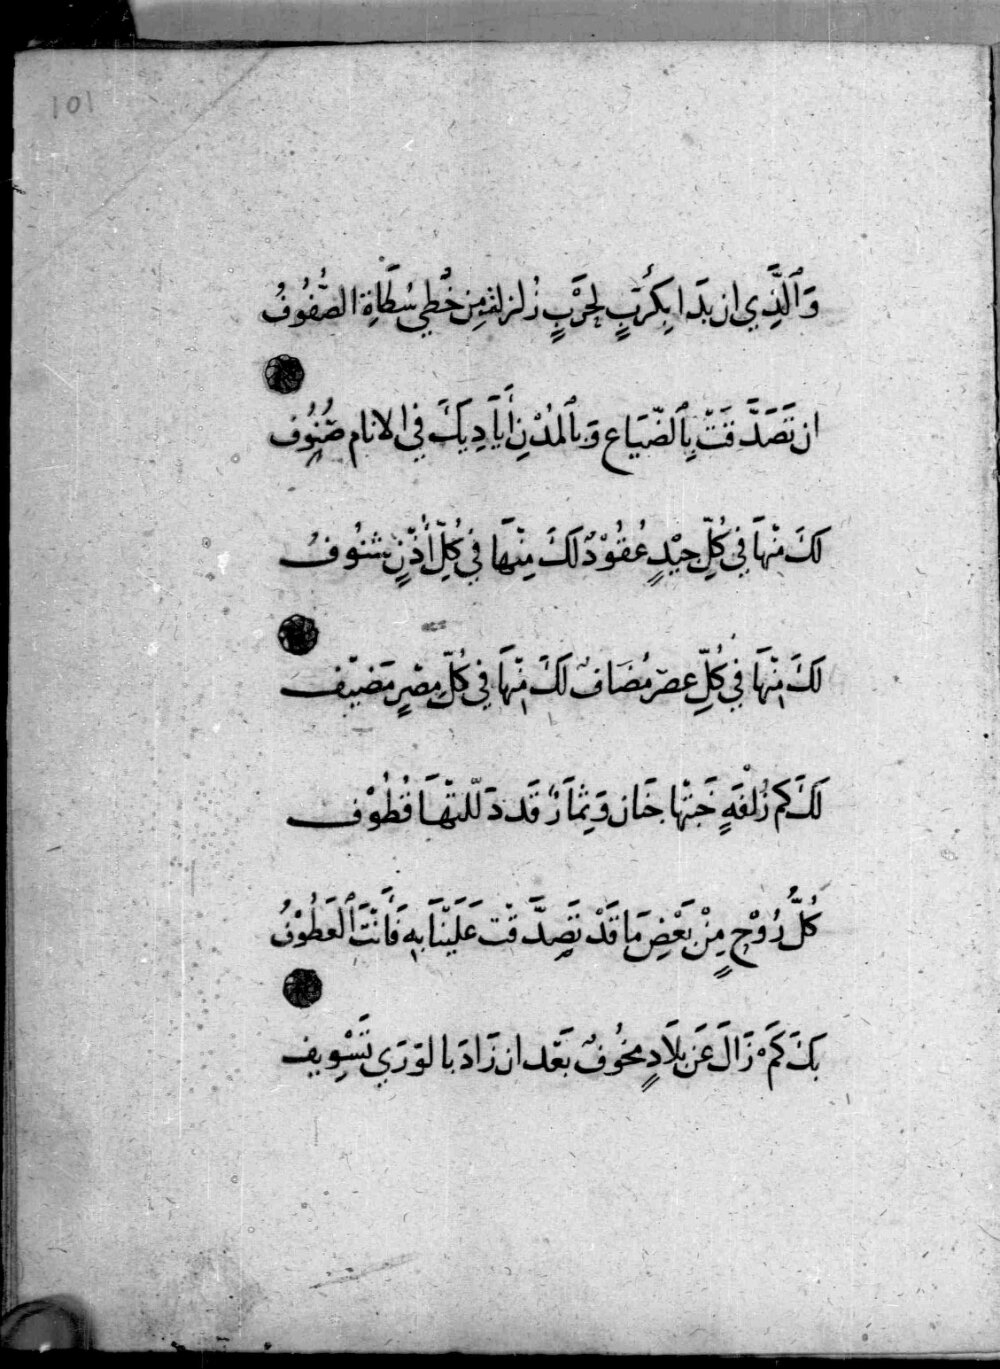 101
وَٱلَّذِي ان بدَا بِكُرَبٍ لِحَرْبٍ زُلزلت مِن خُطي سُطَاةِ الصُّفُوفُ
ان تَصَدَّقَتَ بِٱلضّيَاع وَبٱلمُدْنِ أَيَادِيكَ في الانام صُنُوف
لَكَ مِنْهَا فِي كُلِّ جِيْدٍ عُقُوْدٌ لَكَ مِنْهَا فِي كُلِّ أُذْنٍ شنُوفُ
لَكَ مِنْهَا فِي كُلِّ عصر مُضَافٌ لَكَ مِنْهَا فِي كُلِّ مِصْرٍ مَضيِّف
لَكَ كم زُلْفَةٍ جَنَتْهَا جنَان وَثِمَارٌ قَد دَلّلتْهَا قُطُوْف
كُلُّ رُوْحٍ مِنْ بَعْضِ مَا قَدْ تَصَدَّقْت عَلَيْنَا بِهِ فَأَنْتَ ٱلعَطُوْفُ
بكَ كَمْ زَالَ عَن بِلَادٍ مخُوفٌ بَعْد ان زَادَ بالوَرَي تَسْوِيف